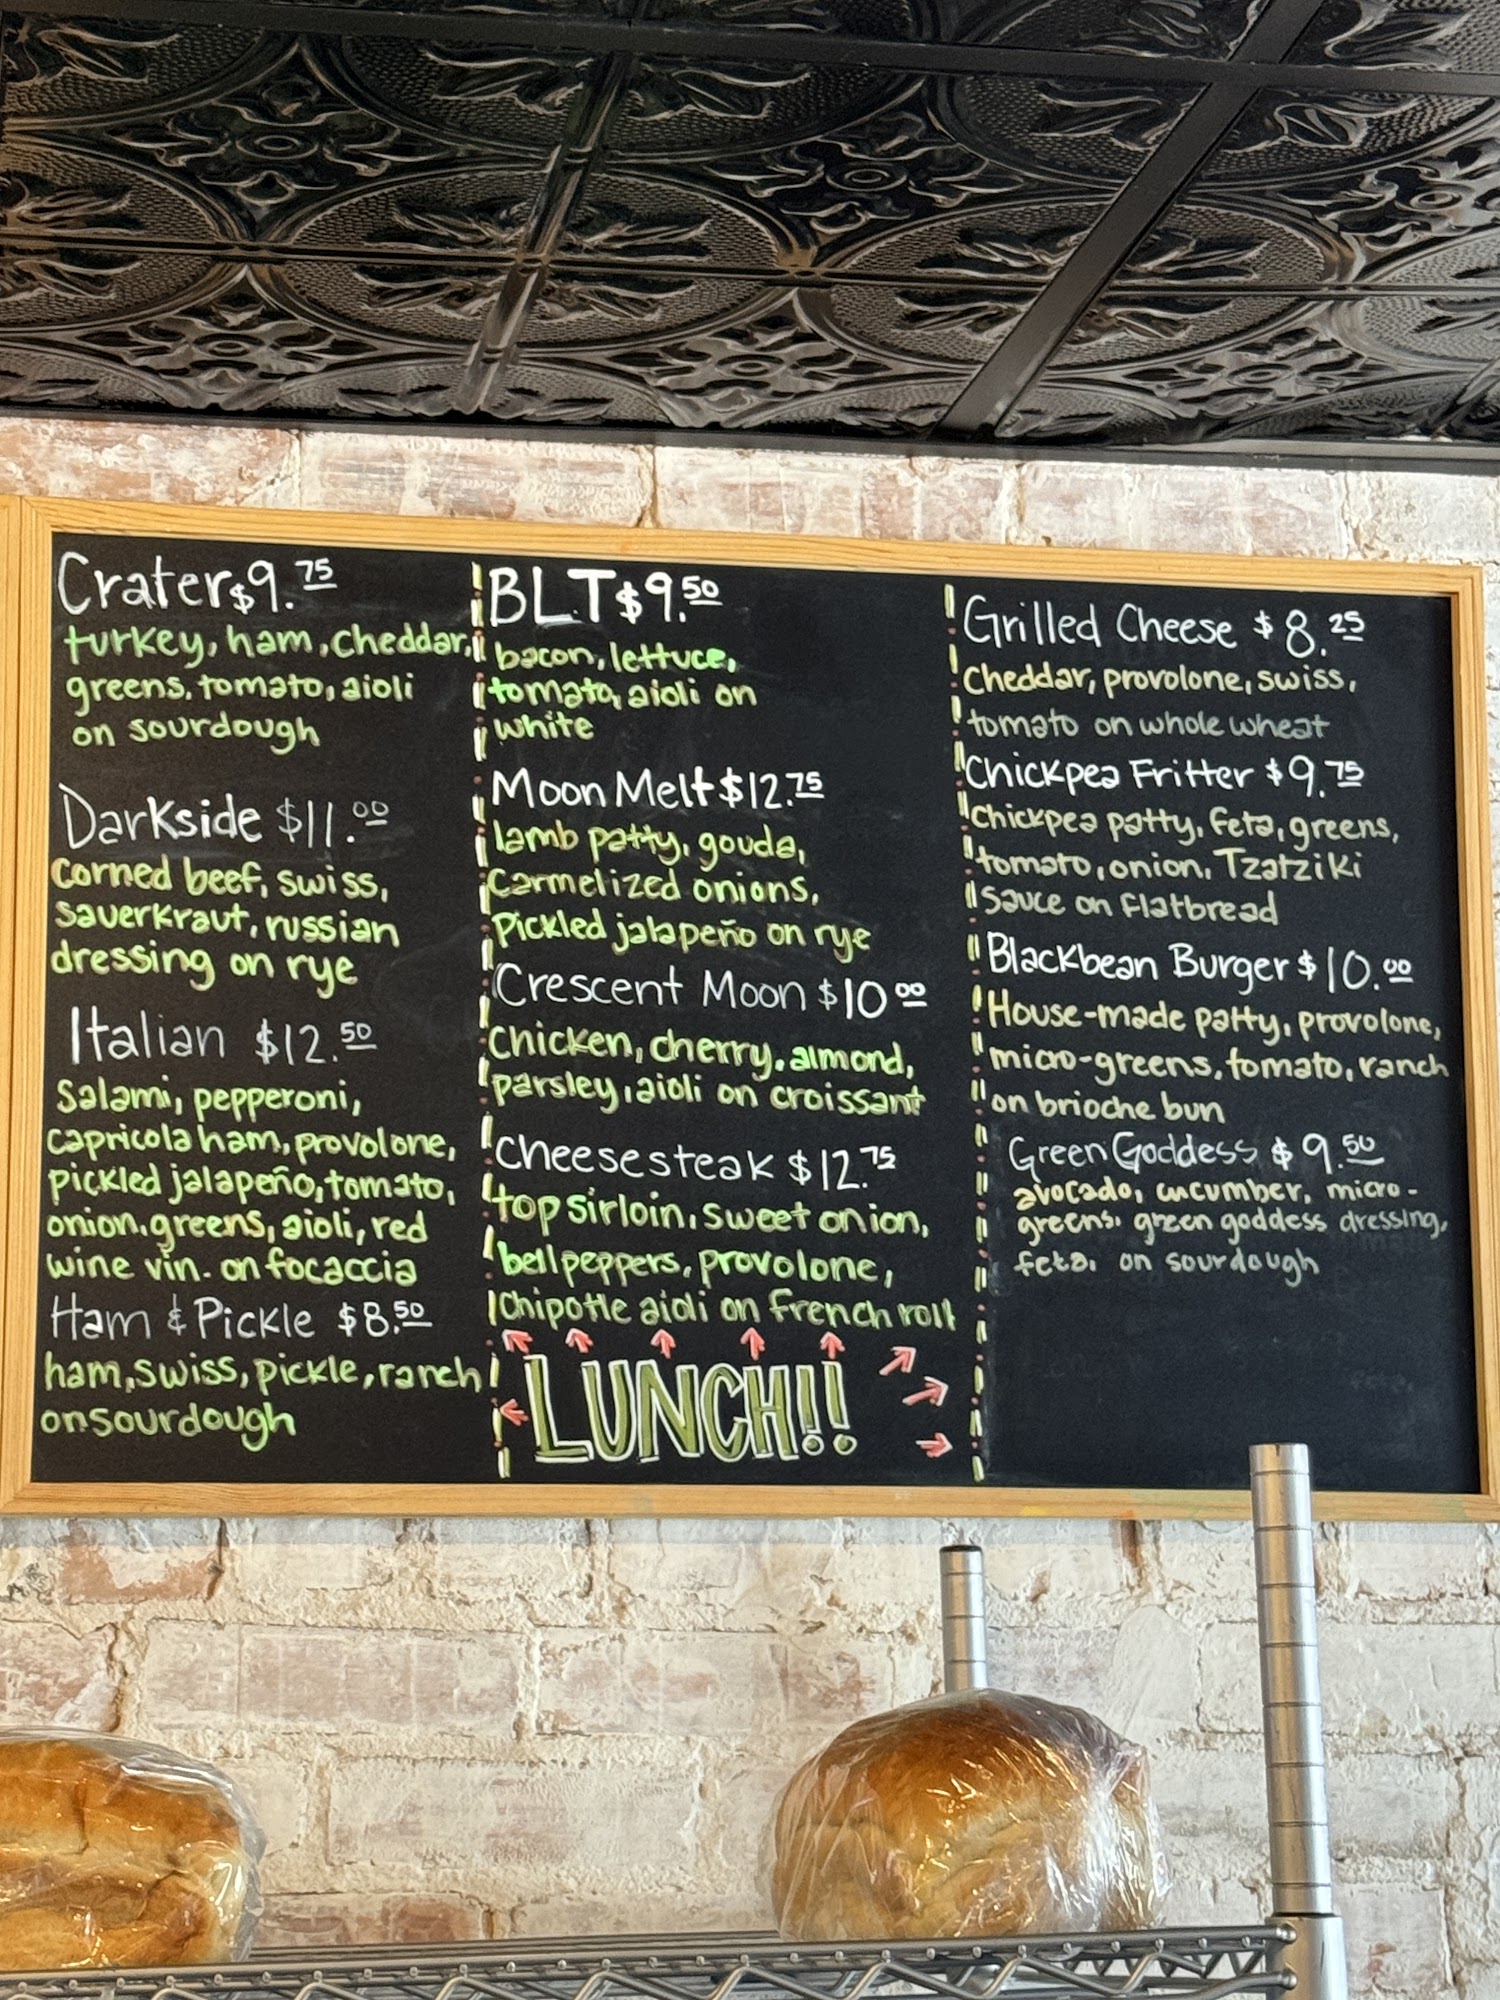 Crater $9.75
turkey, ham, cheddar,
greens, tomato, aioli
on sourdough
Darkside $11.00
Corned beef, swiss,
sauerkraut, russian
dressing on rye
Italian $12.50
Salami, pepperoni,
capricola ham, provolone,
pickled jalapeño, tomato,
onion, greens, aioli, red
wine vin. on focaccia
Ham & Pickle $8.50
ham, swiss, pickle, ranch
on sourdough
BLT $9.50
bacon, lettuce,
tomato, aioli on
white
Moon Melt $12.75
lamb patty, gouda,
Carmelized onions,
Pickled jalapeño on rye
Crescent Moon $10 00
Chicken, cherry, almond,
parsley, aioli on croissant
Cheesesteak $12.75
top sirloin, sweet onion,
bell peppers, provolone,
Chipotle aioli on french roll
LUNCH!!
Grilled Cheese $8.25
Cheddar, provolone, swiss,
tomato on whole wheat
Chickpea Fritter $9.75
Chickpea patty, feta, greens,
tomato, onion, Tzatziki
Sauce on flatbread
Blackbean Burger $10.00
House-made patty, provolone,
micro-greens, tomato, ranch
on brioche bun
Green Goddess $9.50
avocado, cucumber, micro-
greens, green goddess dressing,
feta, on sourdough